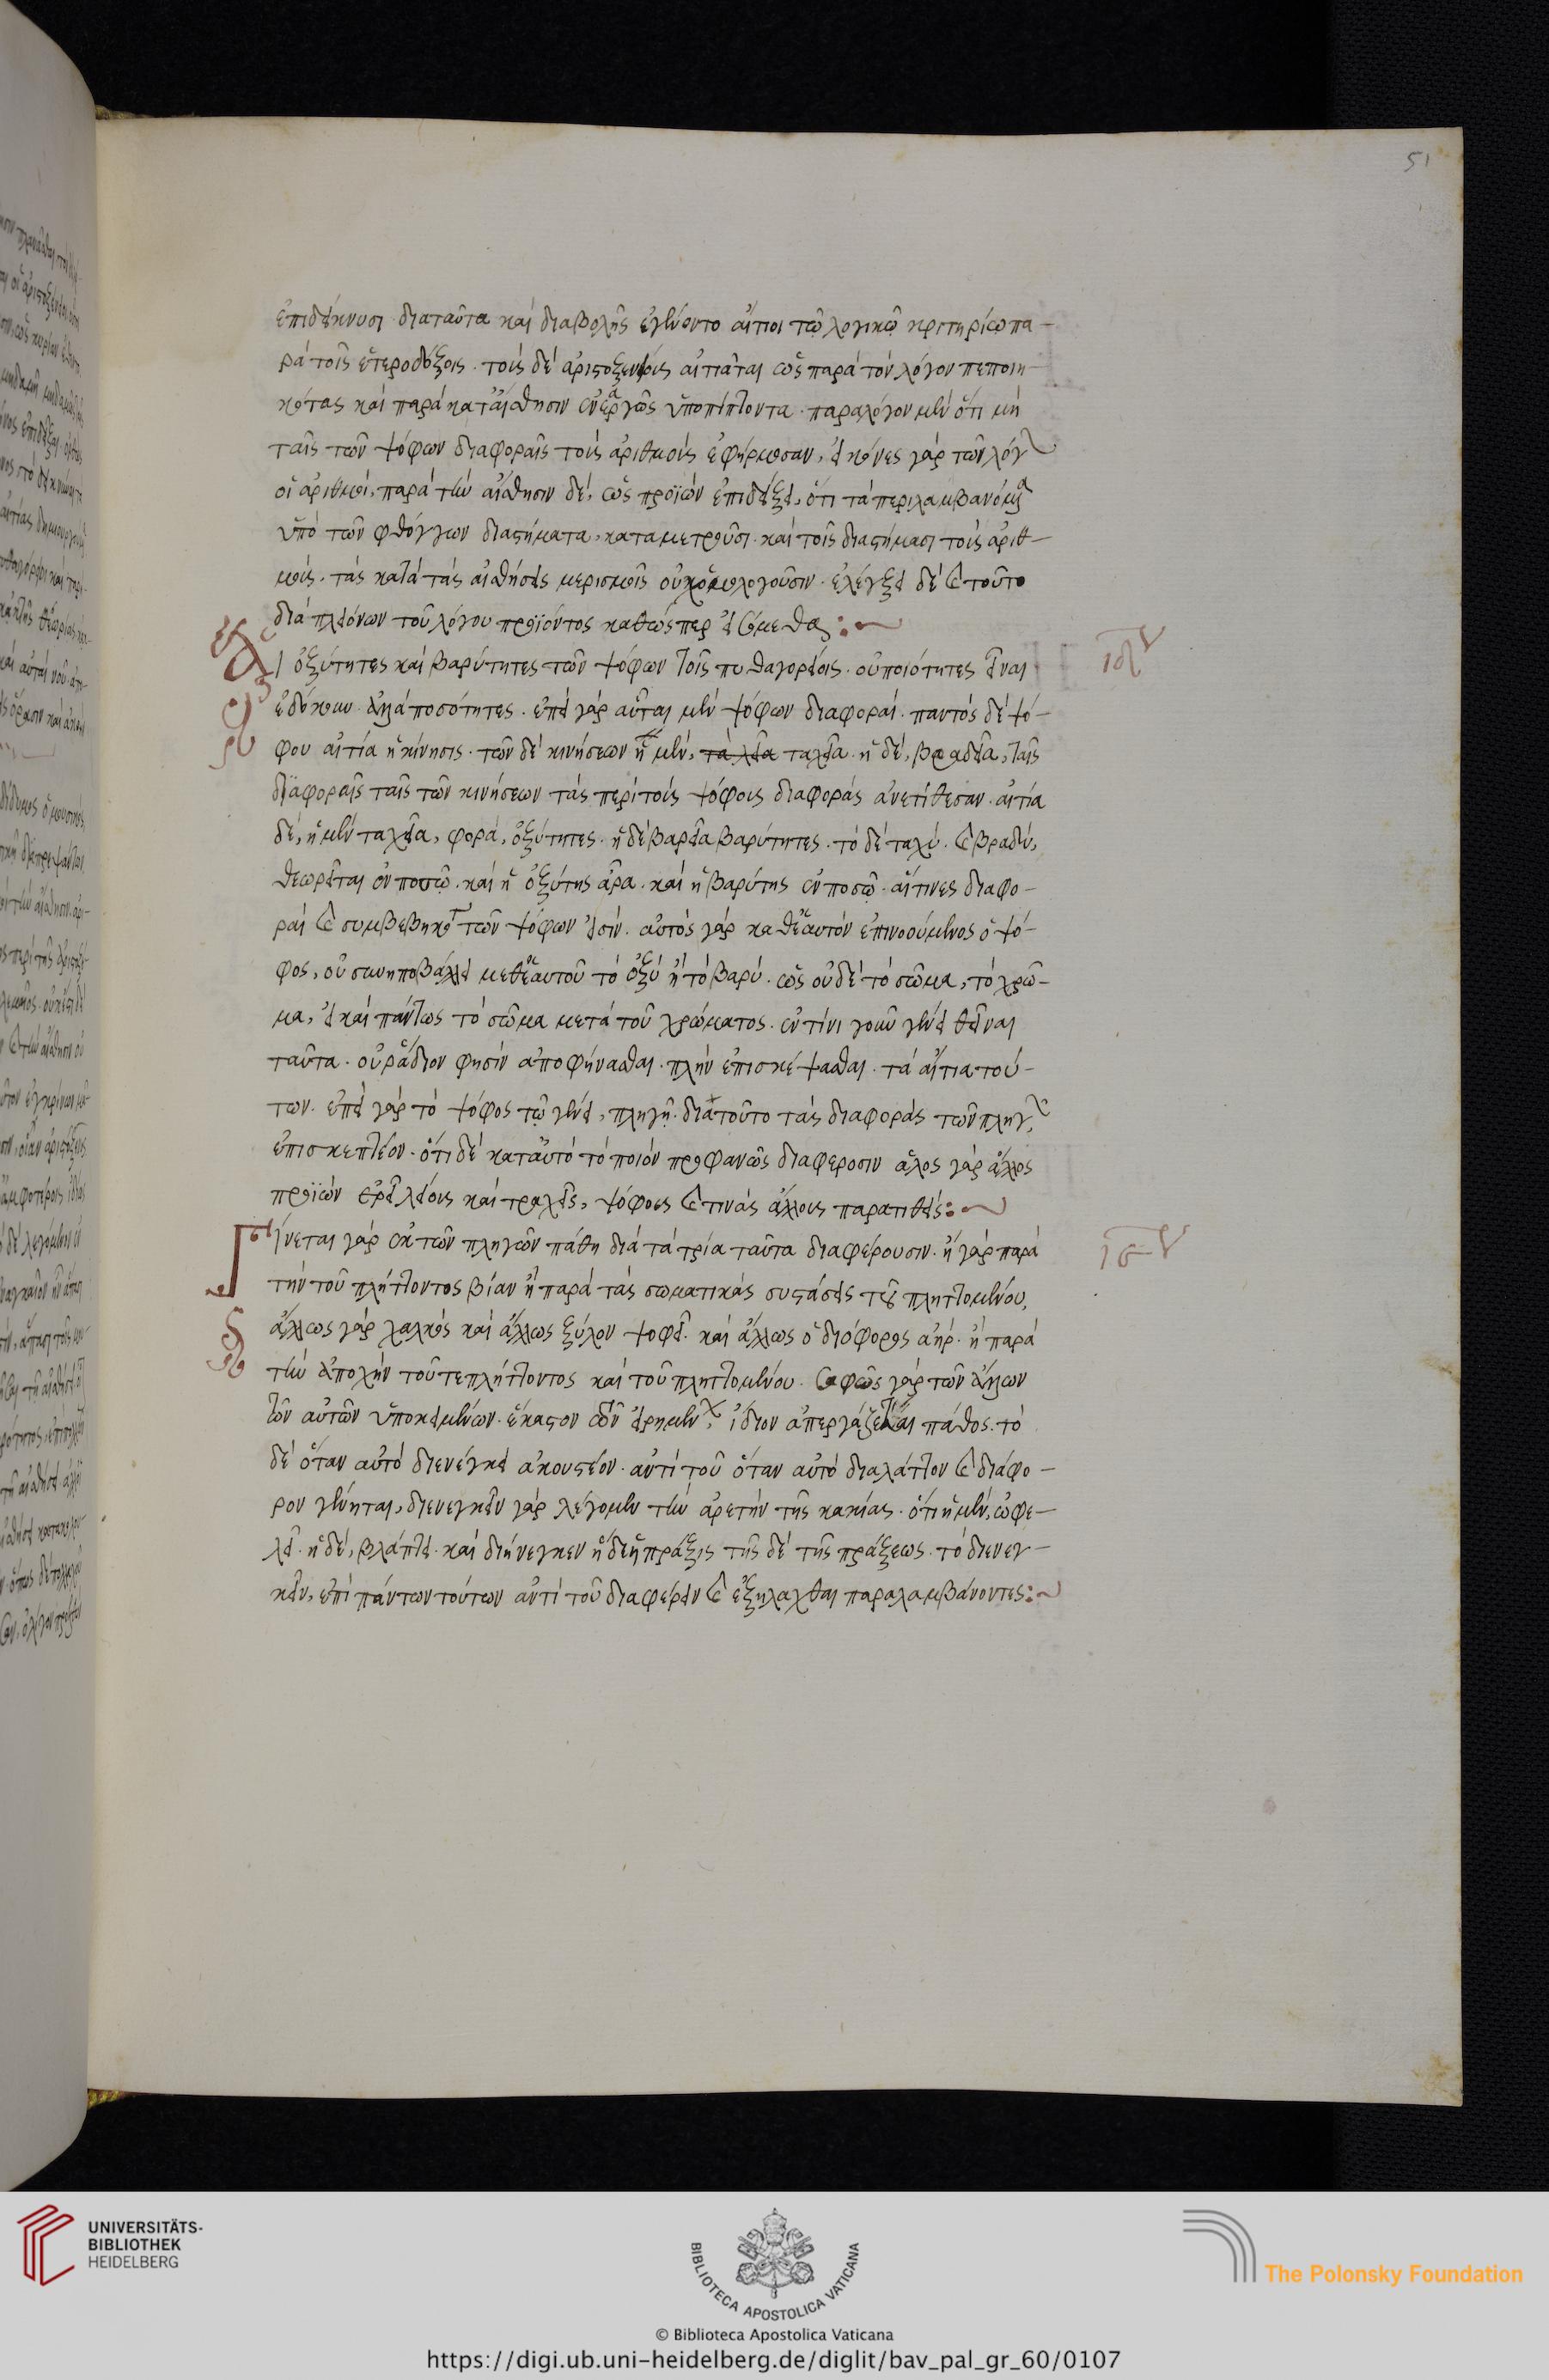 51
ἐπιδείκνυσι διαταῦτα καὶ διαβολῆς ἐγένοντο αἴτιοι τῶ λογικῶ κριτηρίω πα-
ρὰ τοῖς ἑτεροδόξοις. τοὺς δὲ ἀριστοξενείους αἰτιᾶται ὡς παρὰ τὸν λόγον πεποιη-
κότας καὶ παρὰ κατ' αἴσθησιν ἐναργῶς ὑποπίπτοντα. παραλόγον μὲν ὅτι μὴ
ταῖς τῶν ψόφων διαφοραῖς τοὺς ἀριθμοὺς ἐφήρμοσαν, εἰκόνες γὰρ τῶν λόγ
οἱ ἀριθμοί, παρὰ τὴν αἴσθησιν δέ, ὡς προϊὼν ἐπιδείξει, ὅτι τὰ περιλαμβανόμενα
ὑπὸ τῶν φθόγγων διαστήματα, καταμετροῦσι καὶ τοῖς διαστήμασι τοὺς ἀριθ-
μούς. τὰς κατὰ τὰς αἰσθήσεις μερισμοῖς οὐχ ὁμολογοῦσιν. ἐλέγξει δὲ καὶ τοῦτο
διὰ πλειόνων τοῦ λόγου προϊόντος καθώσπερ εἰσόμεθα:~
Αἱ ὀξύτητες καὶ βαρύτητες τῶν ψόφων τοῖς πυθαγορείοις. οὐ ποιότητες εἶναι
ἐδόκουν ἀλλὰ ποσότητες. ἐπεὶ γὰρ αὗται μὲν ψόφων διαφοραί. παντὸς δὲ ψό-
φου αἰτία ἡ κίνησις. τῶν δὲ κινήσεων ἡ μέν, ταχεῖα. ἡ δέ, βραδεῖα, ταῖς
διαφοραῖς ταῖς τῶν κινήσεων τὰς περὶ τοὺς ψόφους διαφορὰς ἀνετίθεσαν. αἰτία
δέ, ἡ μὲν ταχεῖα, φορά, ὀξύτητες. ἡ δὲ βαρεῖα βαρύτητες. τὸ δὲ ταχύ. καὶ βραδύ,
θεωρεῖται ἐν ποσῶ. καὶ ἡ ὀξύτης ἄρα. καὶ ἡ βαρύτης ἐν ποσῶ. αἵτινες διαφο-
ραὶ καὶ συμβεβηκότ τῶν ψόφων εἰσίν. αὐτὸς γὰρ καθ' ἑαυτὸν ἐπινοούμενος ὁ ψό-
φος, οὐ συνηποβάλλει μεθ' ἑαυτοῦ τὸ ὀξὺ ἢ τὸ βαρύ. ὡς οὐδὲ τὸ σῶμα, τὸ χρῶ-
μα, εἰ καὶ πάντως τὸ σῶμα μετὰ τοῦ χρώματος. ἐν τίνι γοῦν γένει θεῖναι
ταῦτα. οὐ ῥάδιον φησὶν ἀποφήνασθαι. πλὴν ἐπισκέψασθαι τὰ αἴτια τού-
των. ἐπεὶ γὰρ τὸ ψόφος τῶ γένει, πληγῆ. διὰ τοῦτο τὰς διαφορὰς τῶν πληγ
ἐπισκεπτέον. ὅτι δὲ κατ' αὐτὸ τὸ ποιὸν προφανῶς διαφεροσιν ἄλος γὰρ ἄλλος
προϊὼν ἐρεῖ λείους καὶ τραχεῖς, ψόφους καὶ τινὰς ἄλλους παρατιθείς:~
Γίνεται γὰρ ἐκ τῶν πληγῶν πάθη διὰ τὰ τρία ταῦτα διαφέρουσιν. ἢ γὰρ παρὰ
τὴν τοῦ πλήττοντος βίαν ἢ παρὰ τὰς σωματικὰς συστάσεις τοῦ πληττομένου,
ἄλλως γὰρ χαλκὸς καὶ ἄλλως ξύλον ψοφεῖ. καὶ ἄλλως ὁ διόφορος ἀήρ. ἢ παρὰ
τὴν ἀποχὴν τοῦ τε πλήττοντος καὶ τοῦ πληττομένου. σαφῶς γὰρ τῶν ἄλλων
τῶν αὐτῶν ὑποκειμένων. ἕκαστον τῶν εἰρημέν, ἴδιον ἀπεργάζεται πάθος. τὸ
δὲ ὅταν αὐτὸ διενέγκει ἀκουστέον. ἀντὶ τοῦ ὅταν αὐτὸ διαλάττον καὶ διάφο-
ρον γένηται, διενεγκεῖν γὰρ λέγομεν τὴν ἀρετὴν τῆς κακίας. ὅτι ἡ μέν, ὠφε-
λεῖ. ἡ δέ, βλάπτει. καὶ διήνεγκεν ἥδε ἡ πρᾶξις τῆς δὲ τῆς πράξεως. τὸ διενεγ-
κεῖν, ἐπὶ πάντων τούτων ἀντὶ τοῦ διαφέρειν καὶ ἐξηλλάχθαι παραλαμβάνοντες:~
UNIVERSITÄTS-
BIBLIOTHEK
HEIDELBERG
BIBLIOTECA APOSTOLICA VATICANA
© Biblioteca Apostolica Vaticana
The Polonsky Foundation
https://digi.ub.uni-heidelberg.de/diglit/bav_pal_gr_60/0107